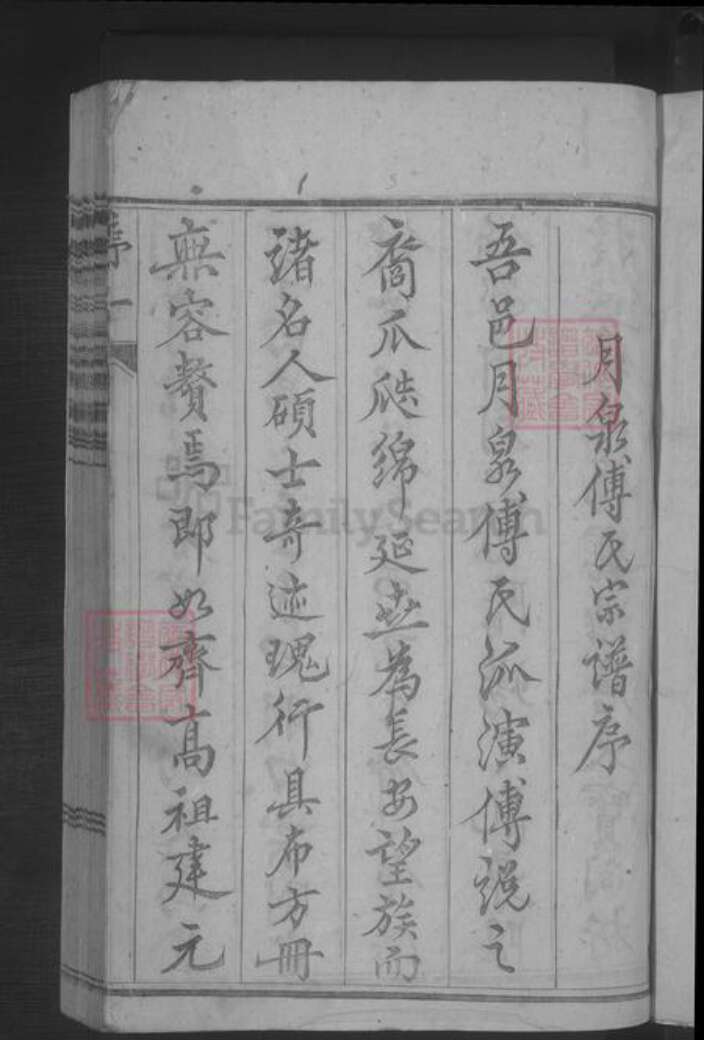 月泉傅氏宗譜序
吾邑月泉傅氏派演傅說之
裔瓜瓞綿延世為長安望族而
諸名人碩士奇迹瑰行具布方冊
無容贅焉即如齊高祖建元
序 一
FamilySearch